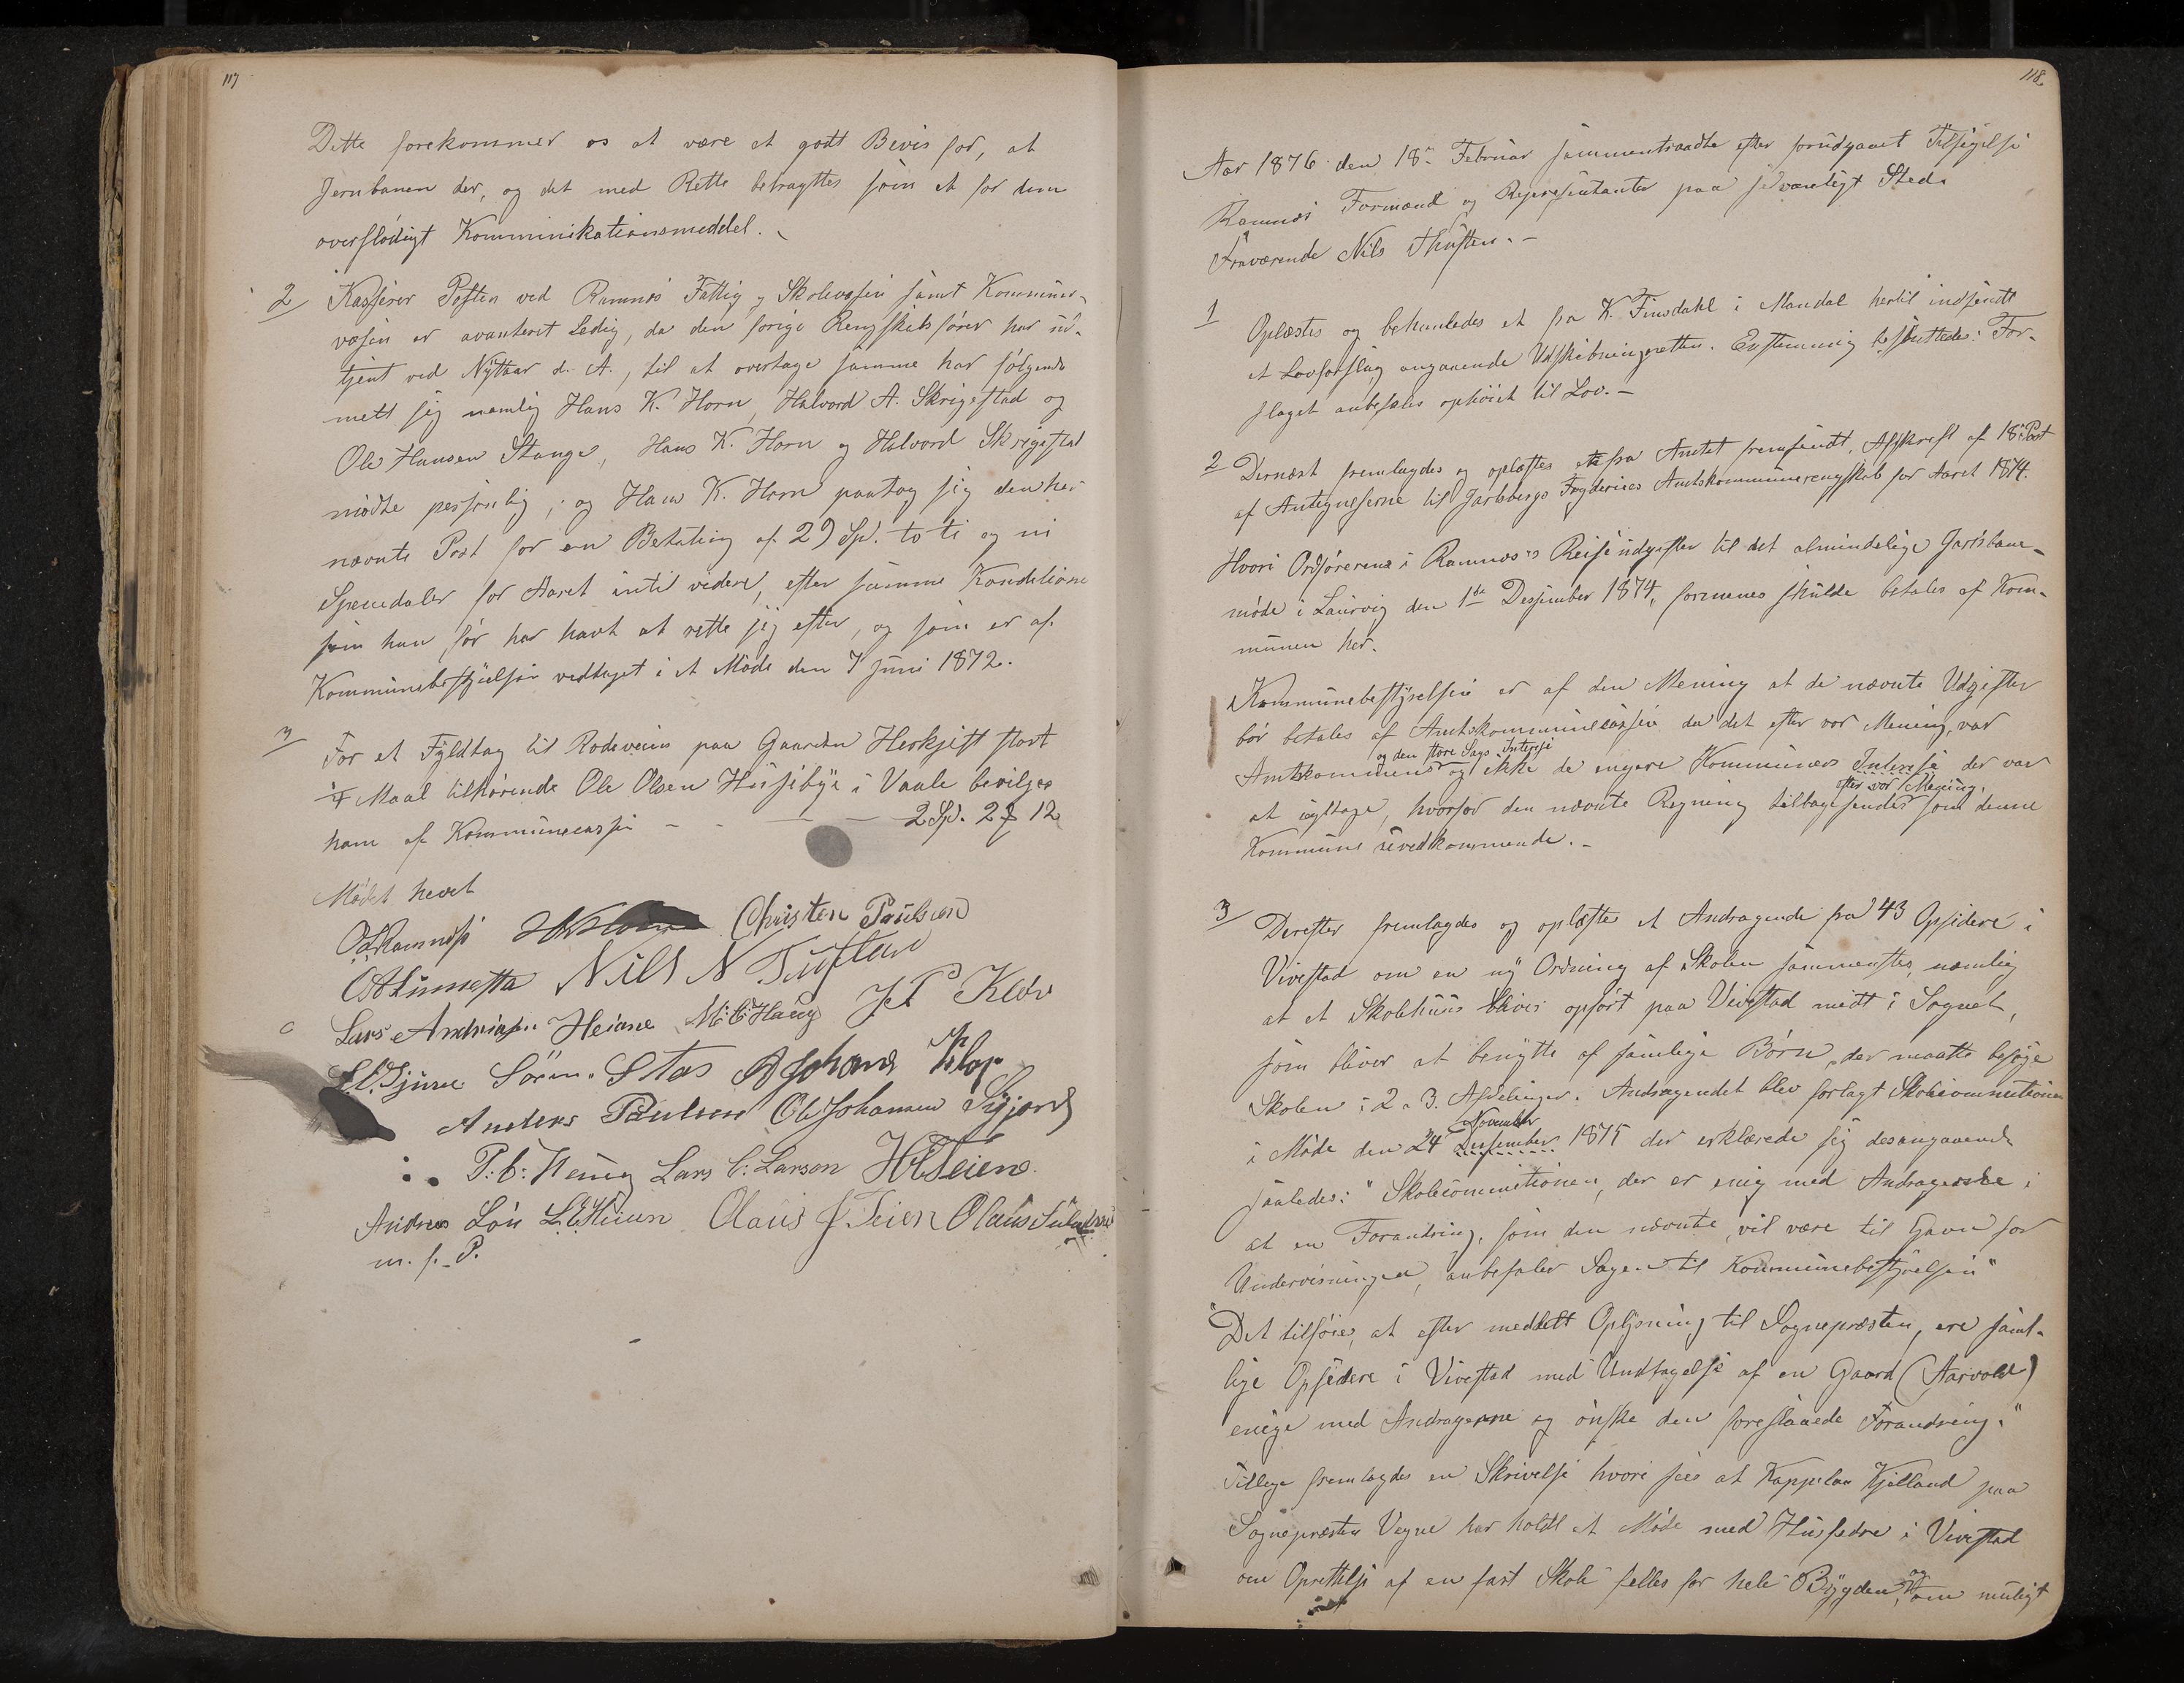 117
Dette forekommer os at være et godt Bevis for, at
Jernbanen der, og det med Rette betragttes som et for dem
overflødigt Kommunikationsmeddel.
2 Kasserer Posten ved Ramnæs Fattig og Skolevæsen samt Kommune-
væsen er avanteret Ledig, da den forige Rengskabsfører har ud-
tjent ved Nyttaar d. A., til at overtage samme har følgende
mett sig nemlig Hans K. Horn, Halvord A. Skrigestad og
Ole Hansen Stange, Hans K. Horn og Halvord Skrigestad
mødte personlig, og Hans K. Horn paatog sig den her
nævnte Post for en Betaling af 29 Spd. to ti og ni
Speciedaler for Aaret inti videre, efter samme Konditione
som han før har havt at rette sig efter, og som er af
Kommunebestyrelsen vedtaget i et Møde den 7 Juni 1872.
3 For et Fyldtag til Rodeveien paa Gaarden Herkjist stort
Maal tilhørende Ole Olsen Husebye i Vaale bevilges
ham af Kommunecassen - - - - 2 Spd. 2 12
Mødet hevet
O. Ramnæs Christen Paulsen
Nils N Tuften
Lars Andreasen Heiane M. C. Haug J P Kløv
Sørn. Stas A Johans Klop
Anders Paulsen Ole Johansen
P. C. Lars C. Larson
Andreas Løn Olaus J. Seien Olaus
m. f. P.
118
Aar 1876 den 18de Februar sammentraadte efter forudgaaet Tilsigelse
Ramnæs Formænd og Representanter paa sedvanligt Sted.
Fraværende Nils Thuften. -
1 Oplæstes og behanledes et fra K. Finsdahl i Mandal hertil indsendt
et Lovforslag angaaende Udskibningsretten. Enstemmig besluttedes: For-
slaget anbefales ophøiet til Lov. -
2 Dernæst fremlagdes og oplæstes fra Amtet fremsendt, Afskreft af 18de Post
af Antegnelserne til Jarlsbergs Fogderies Amtskommunerengskab for Aaret 1874.
Hvori Ordførerens i Ramnæs's Reiseudgifter til det almindelige Jernbane-
møde i Laurvig den 1ste Desember 1874, formenes skulde betales af Kom-
munen her.
Kommunebestyrelsen er af den Mening at de nævnte Udgifter
bør betales af Amtskommunecassen da det efter vor Mening, var
og den store Sags Interesse
Amtskommunens og ikke de engere Kommuners Interesse der var
efter vor Mening,
at iagttage, hvorfor den nævnte Regning tilbagesendes som denne
Kommune uvedkommende. -
3 Derefter fremlagdes og oplæstes et Andragende fra 43 Opsidere i
Vivestad om en ny Ordning af Skolen sammensttes, nemlig
at et Skolehuus blives opført paa Vivestad midt i Sognet,
som bliver at benytte af samlige Børn, der maatte besøge
Skolen i 2 a 3. Afdelinger. Andragendet blev forlagt Skolecommitionen
November
i Møde den 24 Desember 1875 der erklærede sig desangaaende
saaledes: "Skolecommitionen, der er enig med Andragerne i
at en Forandring, som den nævnte, vil være til Gavn for
Undervisningen, anbefaler Sagen til Kommunebestyrelsen"
"Det tilføies, at efter meddelt Oplysning til Sognepræsten, ere samt-
lige Opsidere i Vivestad med Undtagelse af en Gaard (Aarvold)
enige med Andragerne og ønske den foreslaaede Forandring."
Tillige fremlagdes en Skrivelse hvori sees at Kappelan Kjelland paa
Sognepræsten Vegne har holdt et Møde med Husfedre i Vivestad
og
om Oprettelse af en fast Skole felles for hele Bygden, om muligt